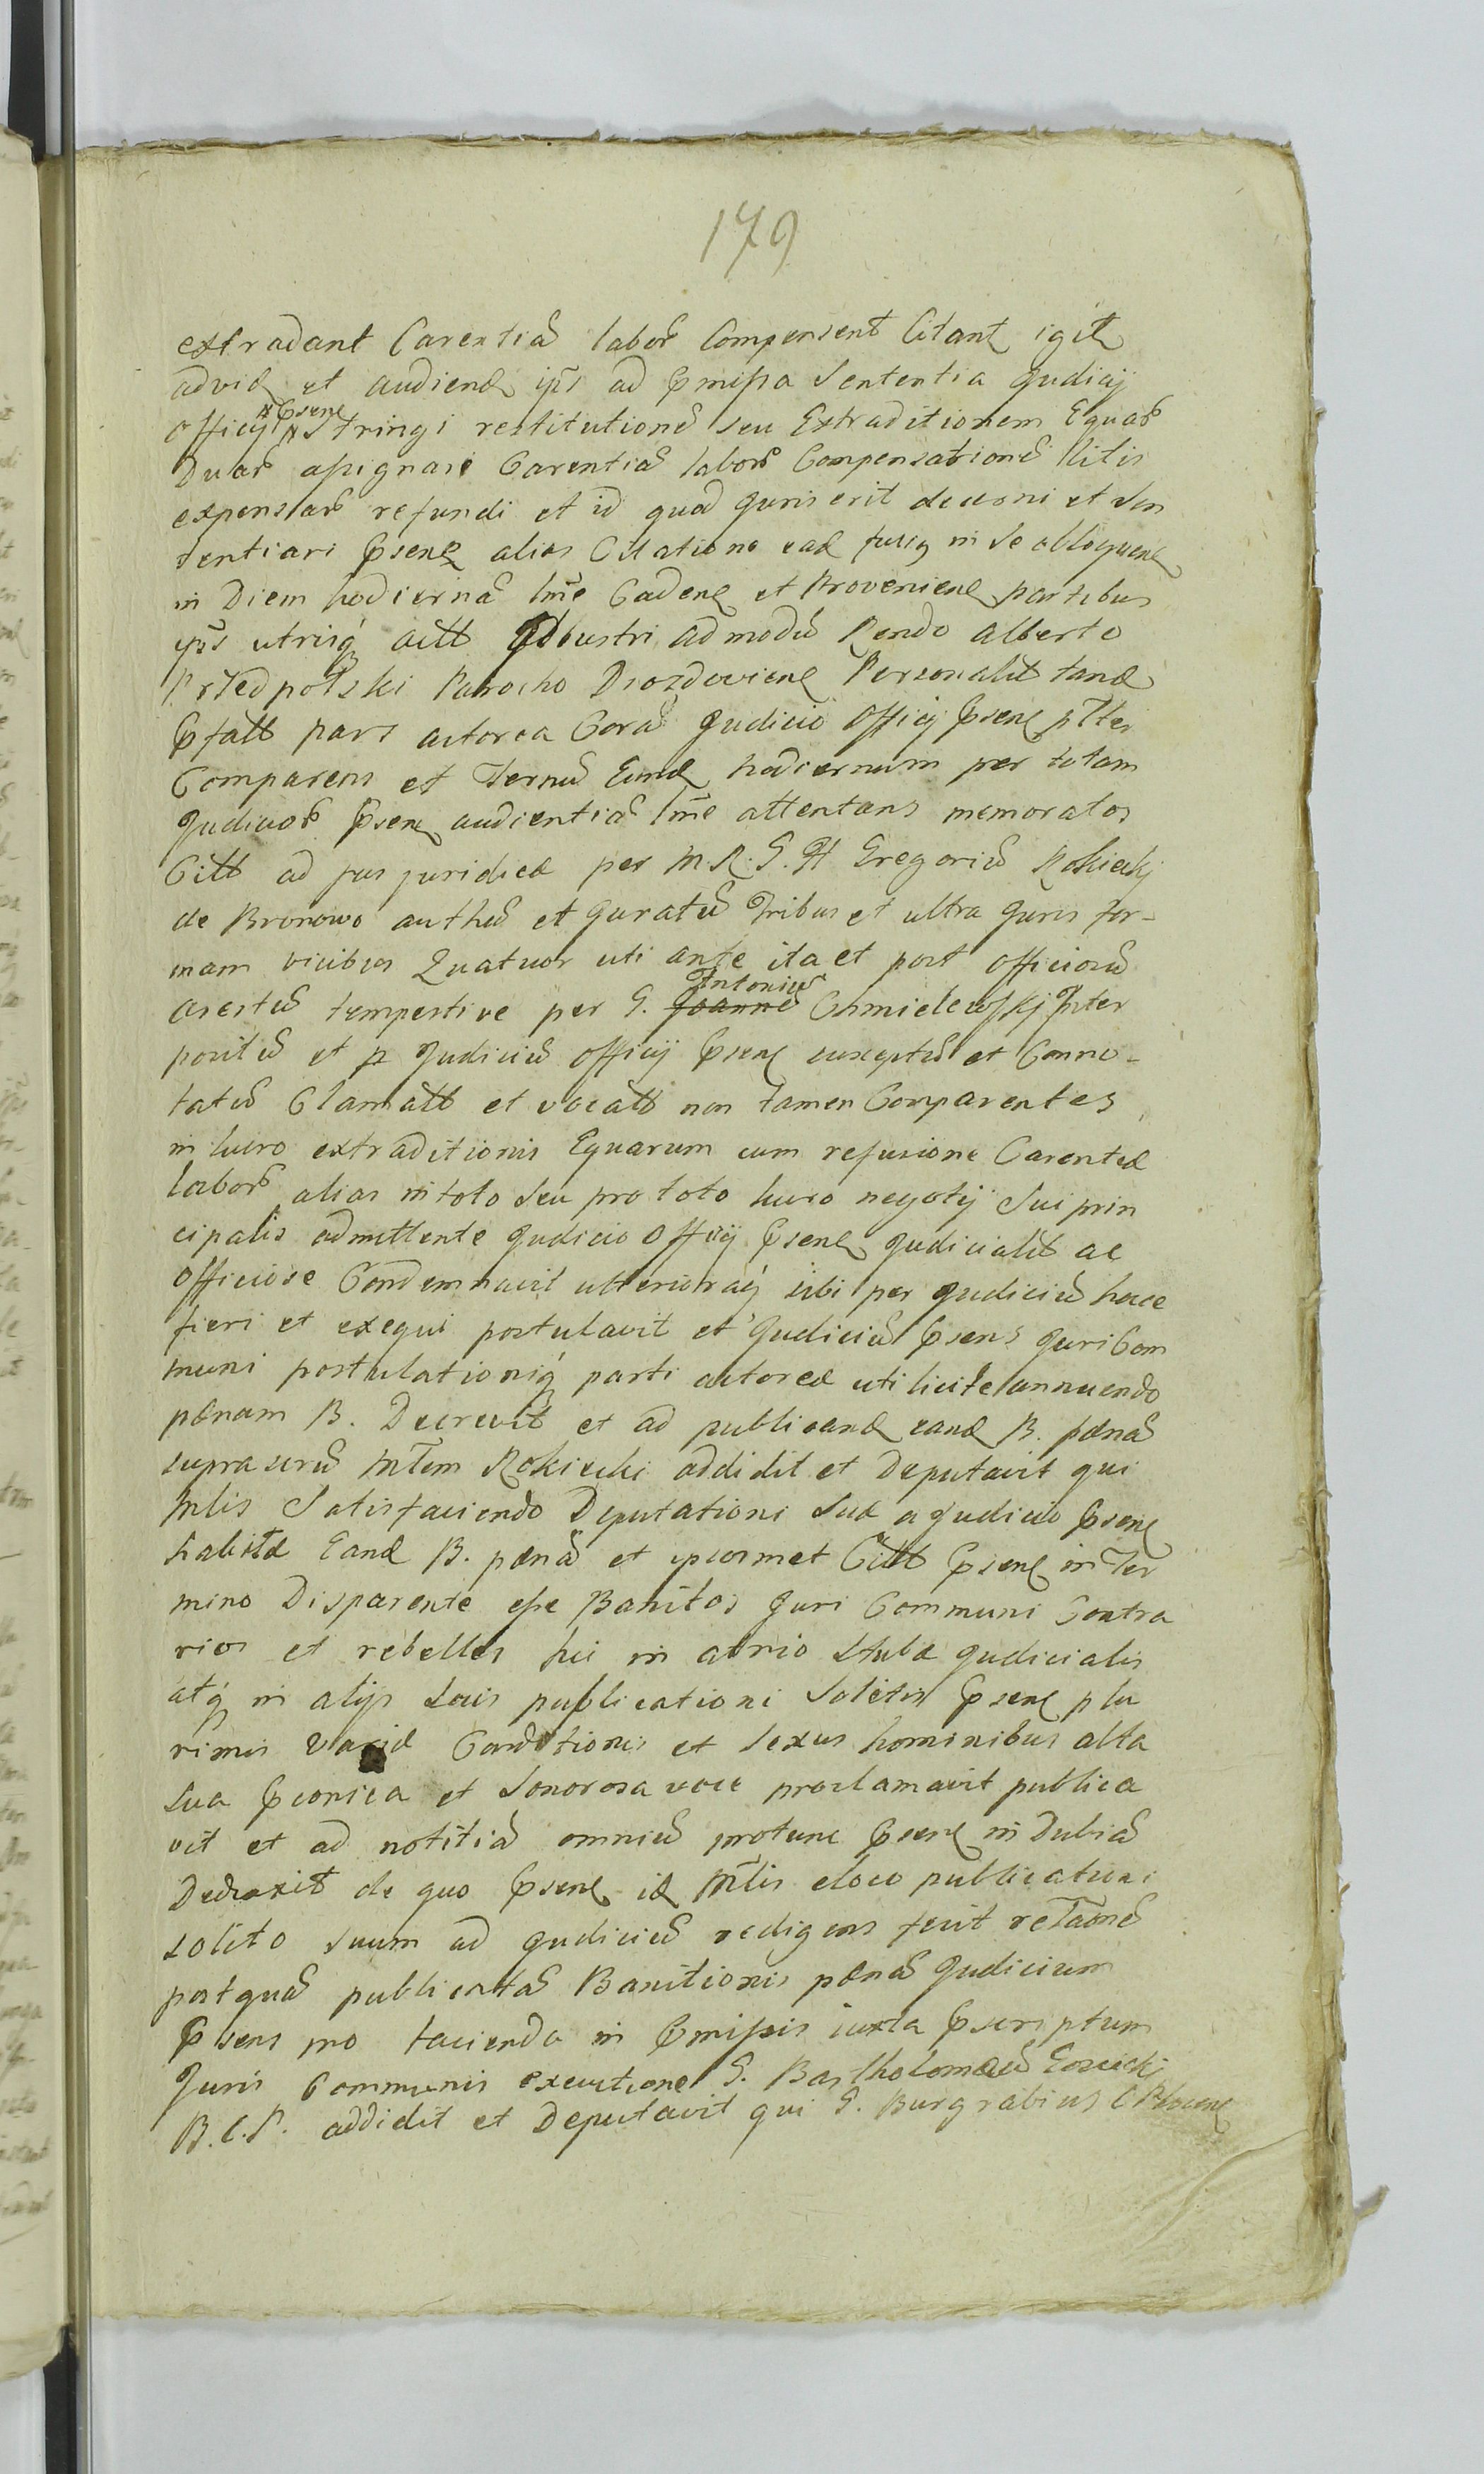 179
extradant Carentiã labor Compensent Citant igitr
ad vid et audiend ips ad Pmissa Sententia Judicij
Officij Psene
stringi restitutionẽ seu Extraditionem Equar
Duar assignari Carentiã labor Compensationẽ litis
expensar refundi et id quod Juris erit decerni et Sen
tentiari Psene alias Citatione ead fusig in se obloquene
in Diem hodiernã lme Cadene et Proveniene partibus
ips utrisq actt Illustri admodũ Rendo Alberto
Przedpołski Parocho Drozdoviene Personalit tanq
Pfatt pars actorea Corã Judicio Officij Psene pltr
Comparens et Ternũ Eund hodiernum per totam
Judicior Psene audientiã lme attentans memoratos
Citt ad jus juridice per M. R. G. H Gregoriũ Rokicki
de Bronowo authũ et Juratũ Tribus et ultra Juris for-
mam vicibus Quatuor uti ante ita et post officiosũ
arestũ tempestive per G. Joannẽ Antoniũ Chmielewski Inter
positũ et p Judiciũ Officij Psene susceptũ et Conno-
tatũ Clamatt et vocatt non tamen Comparentes
in lucro extraditionis Equarum cum refusione Carentiæ
labor alias in toto seu pro toto lucro negotij Sui prin
cipalis admittente Judicio Officij Psene Judicialit ac
Officiose Condemnavit ulterioraq sibi per Judiciũ hocce
fieri et exequi postulavit et Judiciũ Psens Juri Com
muni postulationiq parti actoreæ uti licite annuendo
pænam B. Decrevit et ad publicand eand B. pænã
supra scrũ Mltem Rokicki addidit et Deputavit qui
Mlis Satisfaciendo Deputationi Suæ a Judicio Psene
habitæ Eand B. pænã et ipsosmet Citt Psene in Ter
mino Disparente esse Banitos Juri Communi Contra
rios et rebelles hic in atrio Stubæ Judicialis
atq in alijs Locis publicationi Solitis Psene plu
rimis variæ Conditionis et Sexus hominibus alta
sua Pconica et Sonorosa voce proclamavit publica
vit et ad notitiã omniũ protunc Psene in Dubiã
Deduxit de quo Psene id Mltis eloco publicationi
solito suum ad Judiciũ redigens fecit relaonẽ
postquã publicatã Banitionis pænã Judicium
Psens pro facienda in Pmissis iuxta Pscriptum
Juris Communis executione G. Bartholomæũ Gosicki
B. C. P. addidit et Deputavit qui G. Burgrabius C Plocene